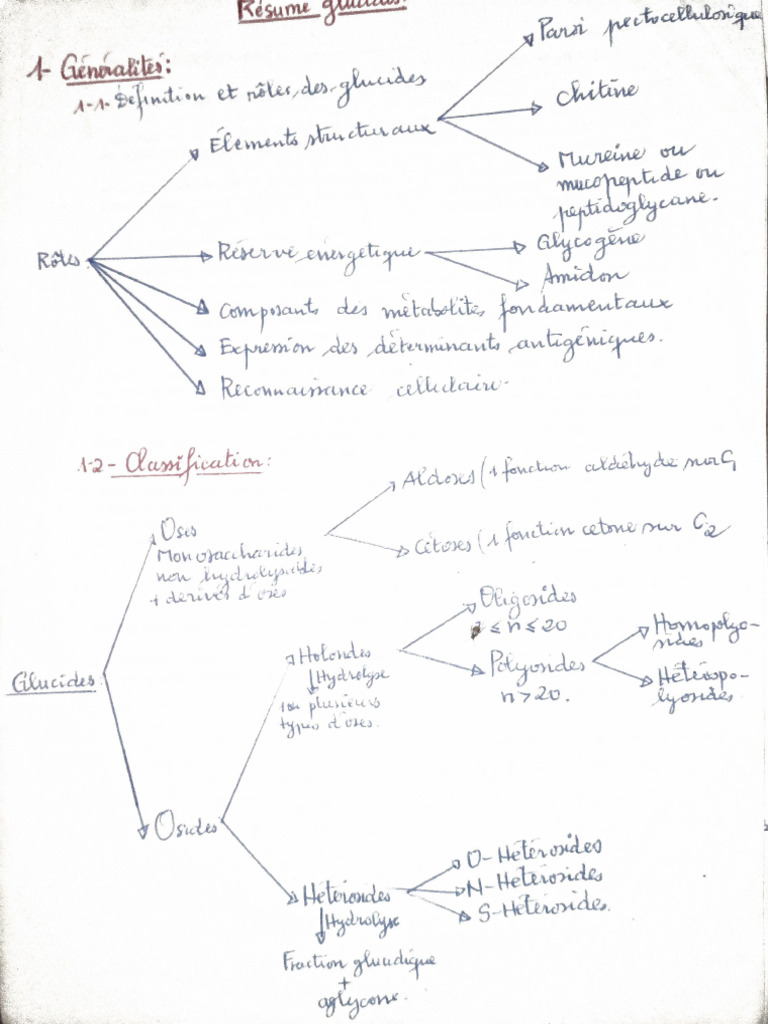 Résumé glucides.
1- Généralités:
1-1- Définition et rôles des glucides
Parsi pectocellulosique
Chitine
Éléments structuraux
Mureine ou
mucopeptide ou
peptidoglycane.
Rôles
Réserve énergétique
Glycogène
Amidon
Composants des métabolites fondamentaux
Expression des déterminants antigéniques.
Reconnaissance cellulaire.
1-2- Classification:
Aldoses (1 fonction aldéhyde sur C1
Cétoses (1 fonction cétone sur C2
Oses
Monosaccharides
non hydrolysables
+ dérivés d'oses
Oligosides
≤ n ≤ 20
Polyosides
n > 20.
Homopolyo-
sides
Hétéropo-
lyosides
Holosides
Hydrolyse
1 ou plusieurs
types d'oses.
Glucides
Osides
Hétérosides
Hydrolyse
Fraction glucidique
+
aglycone.
O-Hétérosides
N-Hétérosides
S-Hétérosides.